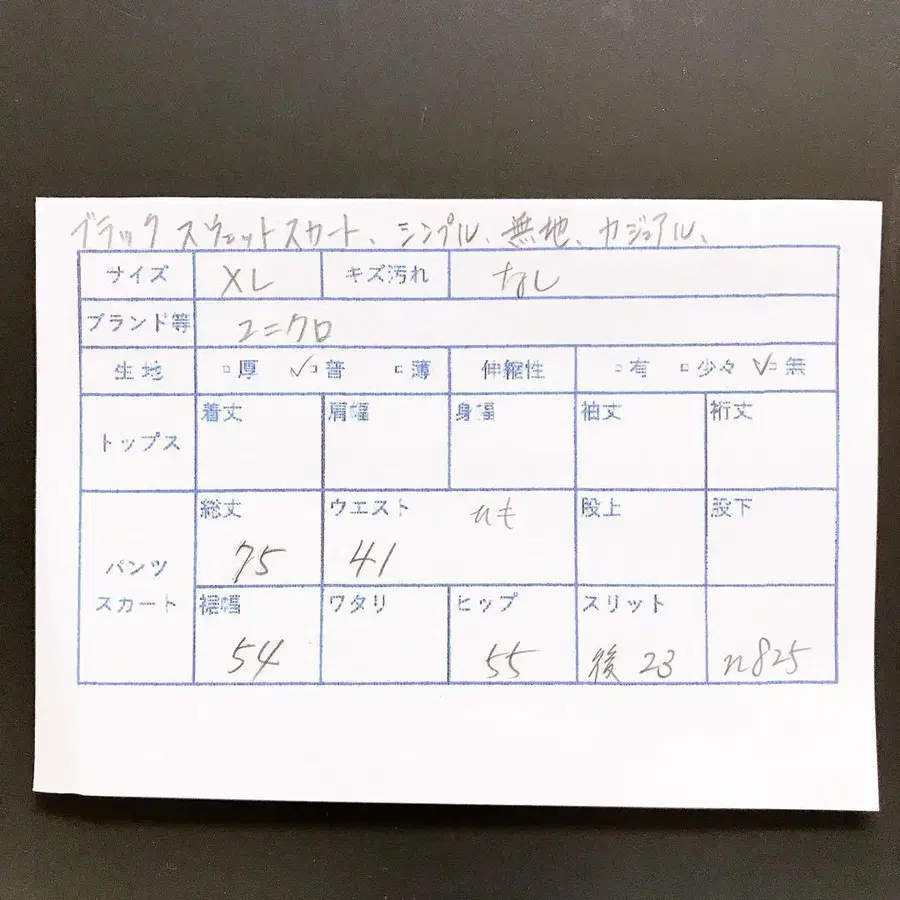 ブラック スウェットスカート、シンプル、無地、カジュアル、
サイズ XL キズ汚れ なし
ブランド等 ユニクロ
生地 □厚 ✓□普 □薄 伸縮性 □有 □少々 ✓□無
トップス 着丈 肩幅 身幅 袖丈 裄丈
総丈 ウエスト 股上 股下
75 41
パンツ
スカート 裾幅 ワタリ ヒップ スリット
54 55 後 23 n825